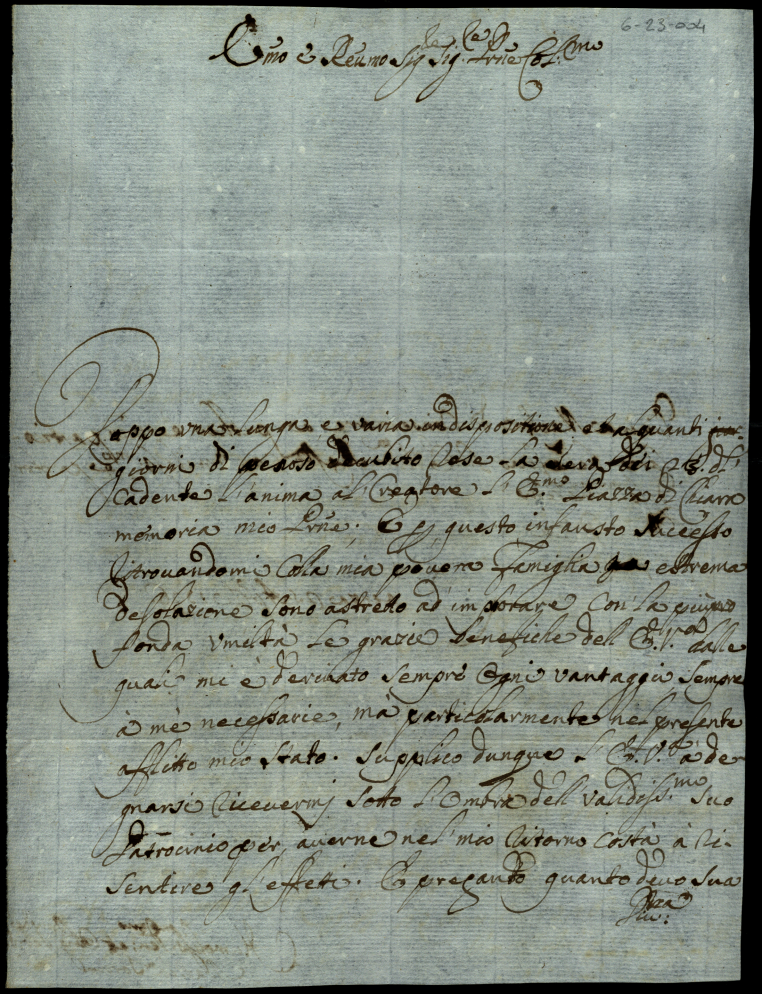 6-23-004
Emo e Reumo Sig.re Sig.re Prne Col.mo
Doppo una lunga, e varia indispositione, e alquanti
giorni di penoso decubito rese la sera delli
cadente l'anima al Creatore l'E.mo Piazza di Chiara
memoria mio Prne. E p questo infausto successo
ritrovandomi colla mia povera famiglia in estrema
desolazione sono astretto ad implorare con la più pro
fonda umiltà le grazie benefiche dell' E.V. dalle
quali mi è derivato sempre ogni vantaggio sempre
à mè necessarie, mà particolarmente nel presente
afflitto mio stato. Supplico dunque l'E.V. à de
gnarsi ricevermi sotto l'ombra dell' validiss.mo suo
Patrocinio per averne nel mio ritorno costà à ri-
sentire gl'effetti. E pregando quanto devo sua